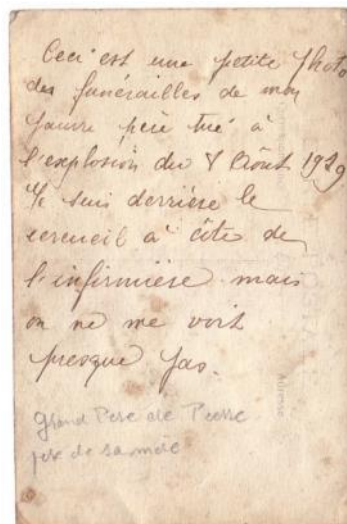 Ceci est une petite photo
des funérailles de mon
pauvre père tué à
l'explosion du 8 Août 1929
Je suis derrière le
cercueil à côté de
l'infirmière mais
on ne me voit
presque pas.
Grand Père de Pierre
père de sa mère